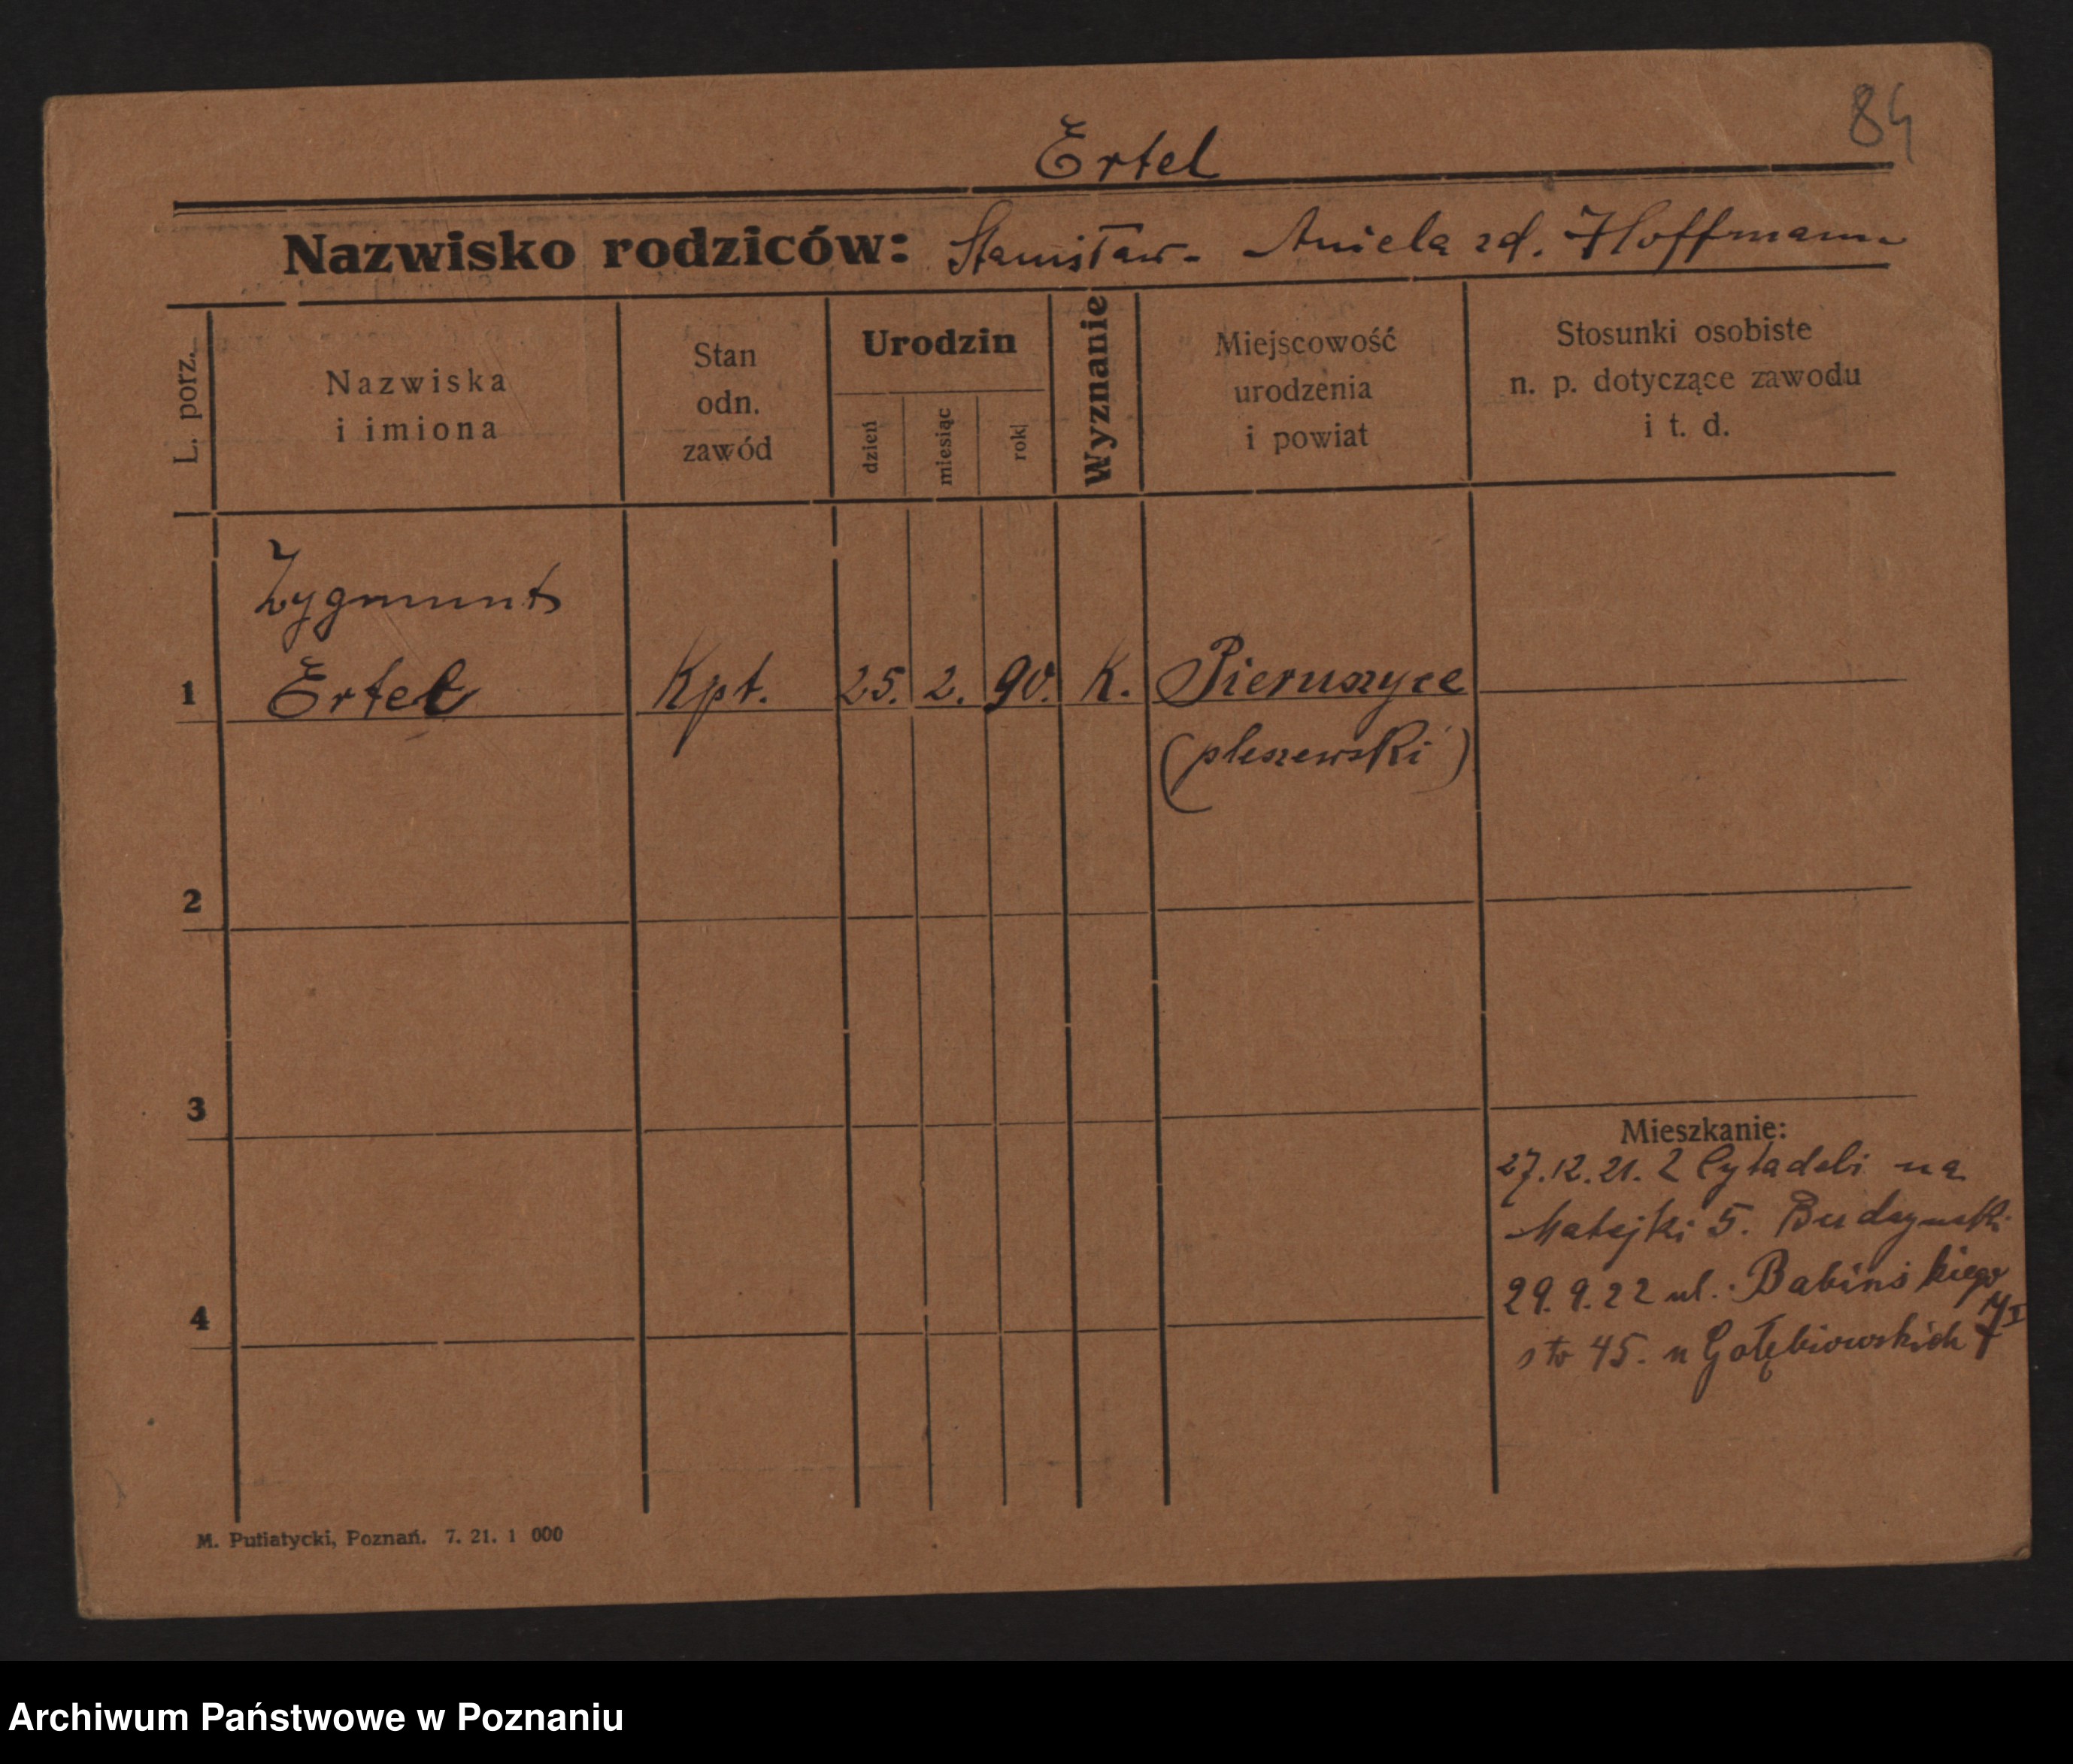 84
Ertel
Nazwisko rodziców: Stanisław - Aniela zd. Hoffmann
L. porz.
Nazwiska
i imiona
Stan
odn.
zawód
Urodzin
dzień
miesiąc
rok
Wyznanie
Miejscowość
urodzenia
i powiat
Stosunki osobiste
n. p. dotyczące zawodu
i t. d.
Zygmunt
1 Ertel Kpt. 25. 2. 90. K. Pieruszyce
(pleszewski)
2
3
Mieszkanie:
27.12.21. Z Cytadeli na
Matejki 5. Budzynski
29.9.22 ul. Babińskiego
4
45. u Gołębiowskich
M. Putiatycki, Poznań. 7. 21. 1 000
Archiwum Państwowe w Poznaniu